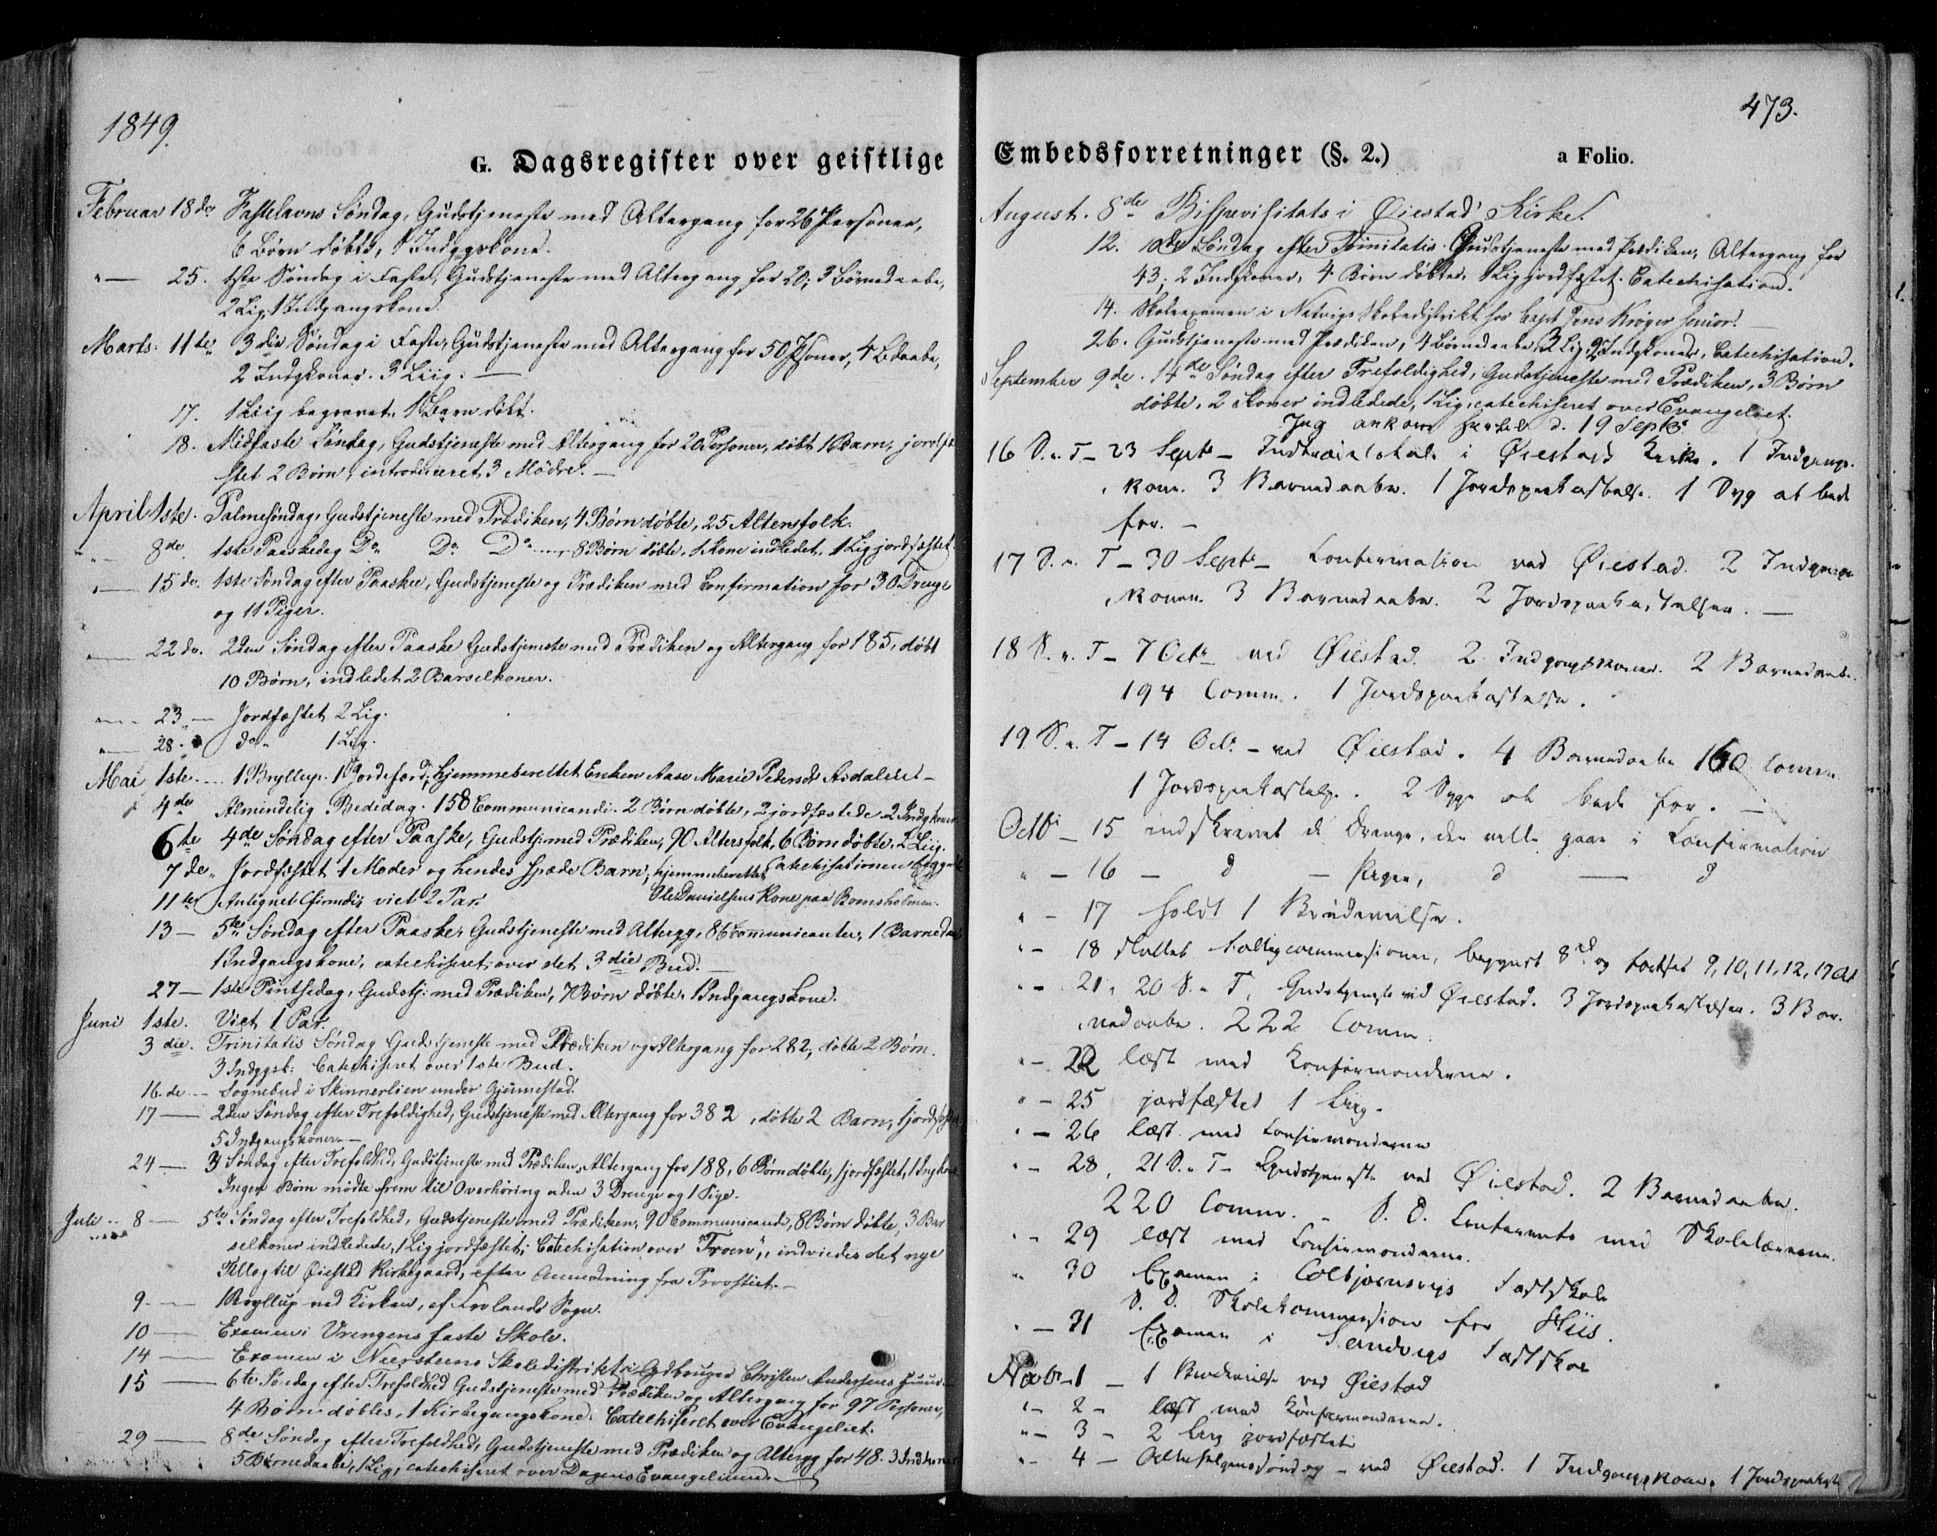 1849.
G. Dagsregister over geistlige
Februar 18de Fastelavns Søndag, Gudstjeneste med Altergang for 26 Personer,
6 Børn døbte, 1 Indggskone.
"— 25. 1ste Søndag i Faste, Gudstjeneste med Altergang for 20; 3 Børnedaabe,
2 Lig, 1 Indgangskone.
Marts. 11te 3die Søndag i Faste, Gudstjeneste med Altergang for 50 Psoner, 4 Bdaabe,
2 Indgkoner. 3 Liig. —
17. 1 Liig begravet, 1 Barn døbt.
18. Midfaste Søndag, Gudstjeneste med Altergang for 20 Personer, døbt 1 Barn, jordfæ-
stet 2 Børn, introduceret 3 Mødre. —
April 1ste. Palmesøndag, Gudstjeneste med Prædiken, 4 Børn døbte, 25 Altersfolk.
8de 1ste Paaskedag Do Do Do 8 Børn døbte, 1 Kone indledet, 1 Lig jordfæstet.
"— 15de. 1ste Søndag efter Paaske, Gudstjeneste og Prædiken med Confirmation for 30 Drenge
og 11 Piger.
22de. 2den Søndag efter Paaske Gudstjeneste med Prædiken og Altergang for 185, døbt
10 Børn, indledet 2 Barselkoner.
23 — Jordfæstet 2 Lig.
28. do. 1 Lig.
Mai 1ste. 1 Bryllup. 1 Jordefærd, hjemmeberettet Enken Aase Marie Pedersdt
4de Almindelig Bededag. 158 Communicandi. 2 Børn døbte, 2 jordfæstede 2 Indgkoner
6te 4de Søndag efter Paaske, Gudstj. med Prædiken, 90 Altersfolk, 6 Børn døbte, 2 Lig.
7de Jordfæstet 1 Moder og hendes spæde Barn, hjemmeberettet Catechisationen begyndt
Ole Danielsens Kone paa Bomsholmen.
11te viet 2 Par.
13 — 5te Søndag efter Paaske, Gudstjeneste med Altergg, 86 Communicanter, 1 Barnedaab
1 Indgangskone, catechiseret over det 3die Bud. —
27 — 1ste Pintsedag, Gudstj: med Prædiken, 7 Børn døbte, 1 Indgangskone.
Juni 1ste. Viet 1 Par.
3die. Trinitatis Søndag Gudstjeneste med Prædiken og Altergang for 282, døbte 2 Børn.
3 Indggsk: Catechiseret over 1ste Bud.
16.de — Sognebud i Skinnerlien under Gjennestad.
17 — 2den Søndag efter Trefoldighed, Gudstjeneste med Altergang for 382, døbte 2 Barn, 1 jordfæstet
5 Indgangskoner. —
24 — 3 Søndag efter Trefoldhed, Gudstjeneste med Prædiken, Altergang for 188, 6 Børn døbte, 1 jordfæstet, 1 Ingkone
Ingen Børn mødte frem til Overhøring uden 3 Drenge og 1 Pige.
Juli 8 — 5te Søndag efter Trefoldhed, Gudstjeneste med Prædiken, 90 Communicandi, 8 Børn døbte, 3 Bar
selkoner indledede, 1 Lig jordfæstet, Catechisation over "Troen", indviedes det nye
Tillæg til Øiestad Kirkegaard, efter Anmodning fra Provstiet. —
9. — 1 Bryllup ved Kirken, af Frolands Sogn.
10 — Examen i Vrengens faste Skole.
14 — Examen i Neersteens Skoledistrikt, Gdbruger Christen Andersens Huus.
15 — 6te Søndag efter Trefoldhed Gudstjeneste med Prædiken og Altergang for 97 Personer,
4 Børn døbtes, 1 Kirkegangskone. Catechiseret over Evangeliet.
29 — 8de Søndag efter Trefoldhed, Gudstjeneste med Prædiken og Altergg for 48. 3 Indkoner
5 Børnedaabe, 1 Lig, catechiseret over Dagens Evangelium. —
473.
Embedsforretninger (§. 2.) a Folio.
August. 8de Bispevisitats i Øiestad Kirke.
12. Søndag efter Trinitatis. Gudstjeneste med Prædiken, Altergang for
43; 2 Indgkoner, 4 Børn døbtes, 1 Lig jordfæstet. Catechisation.
14. Skoleexamen i Nedvigs Skoledistrikt hos Capt Jens Krøger senior.
26. Gudstjeneste med Prædiken, 4 Børnedaabe, 3 Lig, 2 Indgkoner, Catechisation.
September 9de. 14de Søndag efter Trefoldighed, Gudstjeneste med Prædiken, 3 Børn
døbte, 2 Koner indledede, 1 Lig, catechiseret over Evangeliet.
Jeg ankom hertil d. 19 Septb
16 S. e. T — 23 Sept — i Øiestads Kirke. 1 Indgangs-
kone. 3 Barnedaabe. 1 Jordspaakastelse. 1 Syg at bede
for. —
17 S. e. T — 30 Sept — Confirmation ved Øiestad. 2 Indgangs
koner. 3 Barnedaabe. 2 Jordspaakastelser. —
18 S. e. T — 7 Octr ved Øiestad. 2 Indgangskoner. 2 Barnedaabe.
194 Comm. 1 Jordspaakastelse.
19 S. e. T — 14 Oct. — ved Øiestad. 4 Barnedaabe 160 Comm.
1 Jordspaakastelse. 2 Syge at bede for. —
Octb — 15 indskrevet de Drenge, der ville gaae i Confirmation
" — 16 — d — Pigen, d — d
" — 17 holdt 1 Brudevielse.
" — 18 sluttet Fattigcommissioner, begyndt 8de og fortsat 9, 10, 11, 12, 17 Oct
" — 21, 20 S. e. T. Gudstjeneste ved Øiestad. 3 Jordspaakastelser. 3 Bar-
nedaabe. 222 Comm.
" — 22 læst med Konfirmanderne.
" — 25 jordfæstet 1 Liig.
" — 26 læst med Confirmanderne
" — 28, 21 S. e. T — Gudstjeneste ved Øiestad. 2 Barnedaabe.
220 Comm. — S. D. Conferents med Skolelærerne.
" — 29 læst med Confirmanderne.
" 30 Examen i Colbjørnsvigs Fastskole
S. D. Skolekommission for Hiis.
" — 31 Examen i Sandvigs Fastskole
Novbr — 1 — 1 Brudevielse ved Øiestad
" — 2 — læst med Konfirmanderne.
" — 3 — 2 Liig jordfæstet
" — 4 — Allehelgenssøndag — ved Øiestad. 1 Indgangskone. 1 Jordspaakast